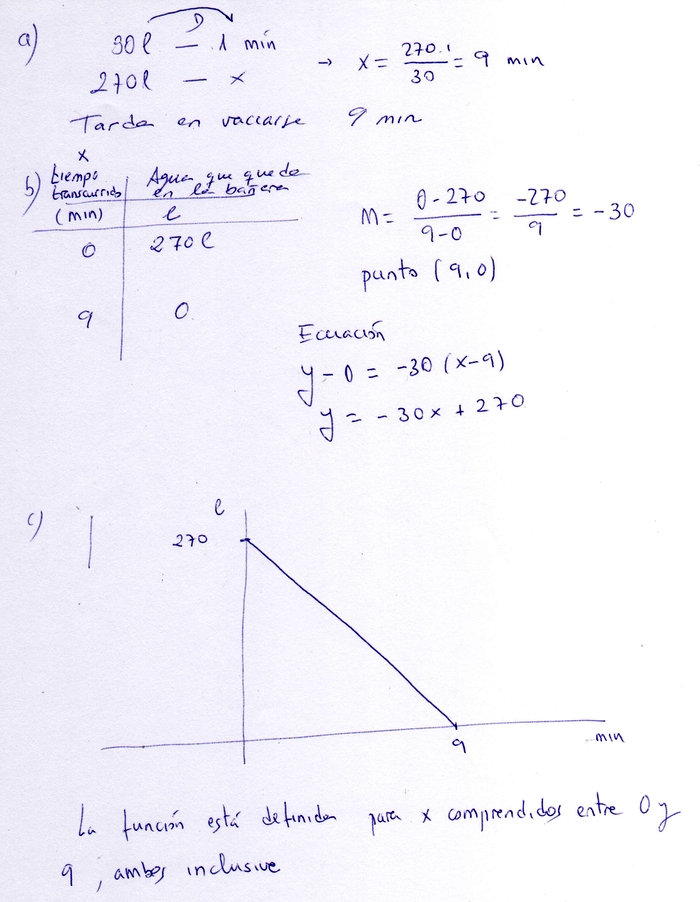 a)
D
30l — 1 min
270l — x
→ x = 270.1/30 = 9 min
Tarda en vaciarse 9 min
b)
x
tiempo transcurrido (min)
Agua que queda en la bañera
l
0 270l
9 0
M = 0-270/9-0 = -270/9 = -30
punto (9,0)
Ecuación
y - 0 = -30 (x-9)
y = -30x + 270
c)
l
270
9
min
La función está definida para x comprendidos entre 0 y
9, ambos inclusive